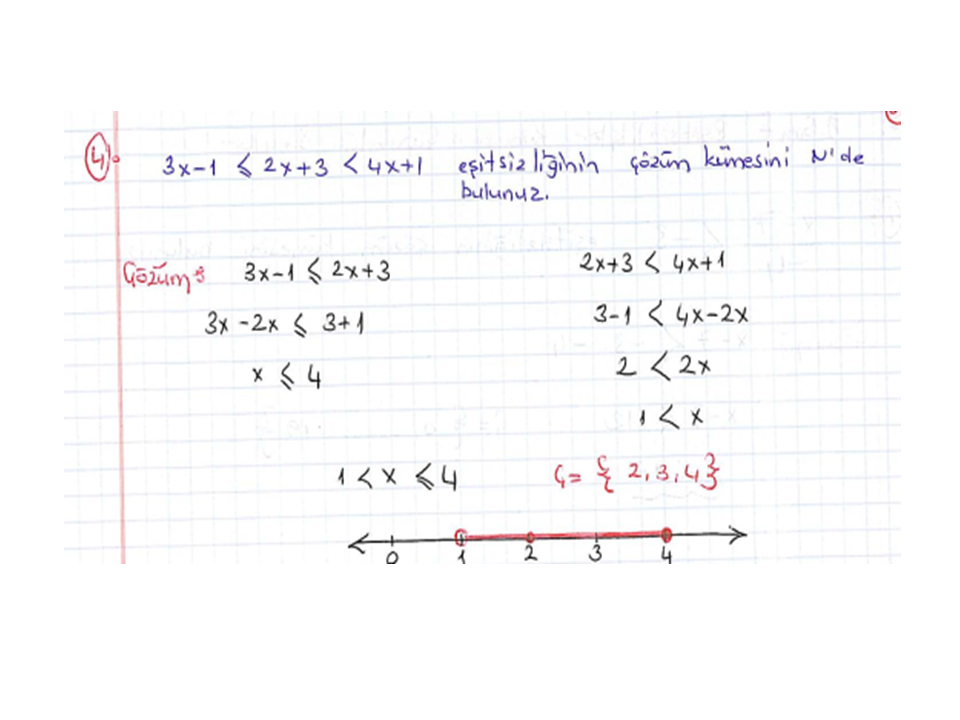 4). 3x-1 ⩽ 2x+3 < 4x+1 eşitsizliğinin çözüm kümesini N'de
bulunuz.
Çözüm: 3x-1 ⩽ 2x+3
3x-2x ⩽ 3+1
x ⩽ 4
2x+3 < 4x+1
3-1 < 4x-2x
2 < 2x
1 < x
1 < x ⩽ 4
Ç= { 2,3,4}
0 1 2 3 4